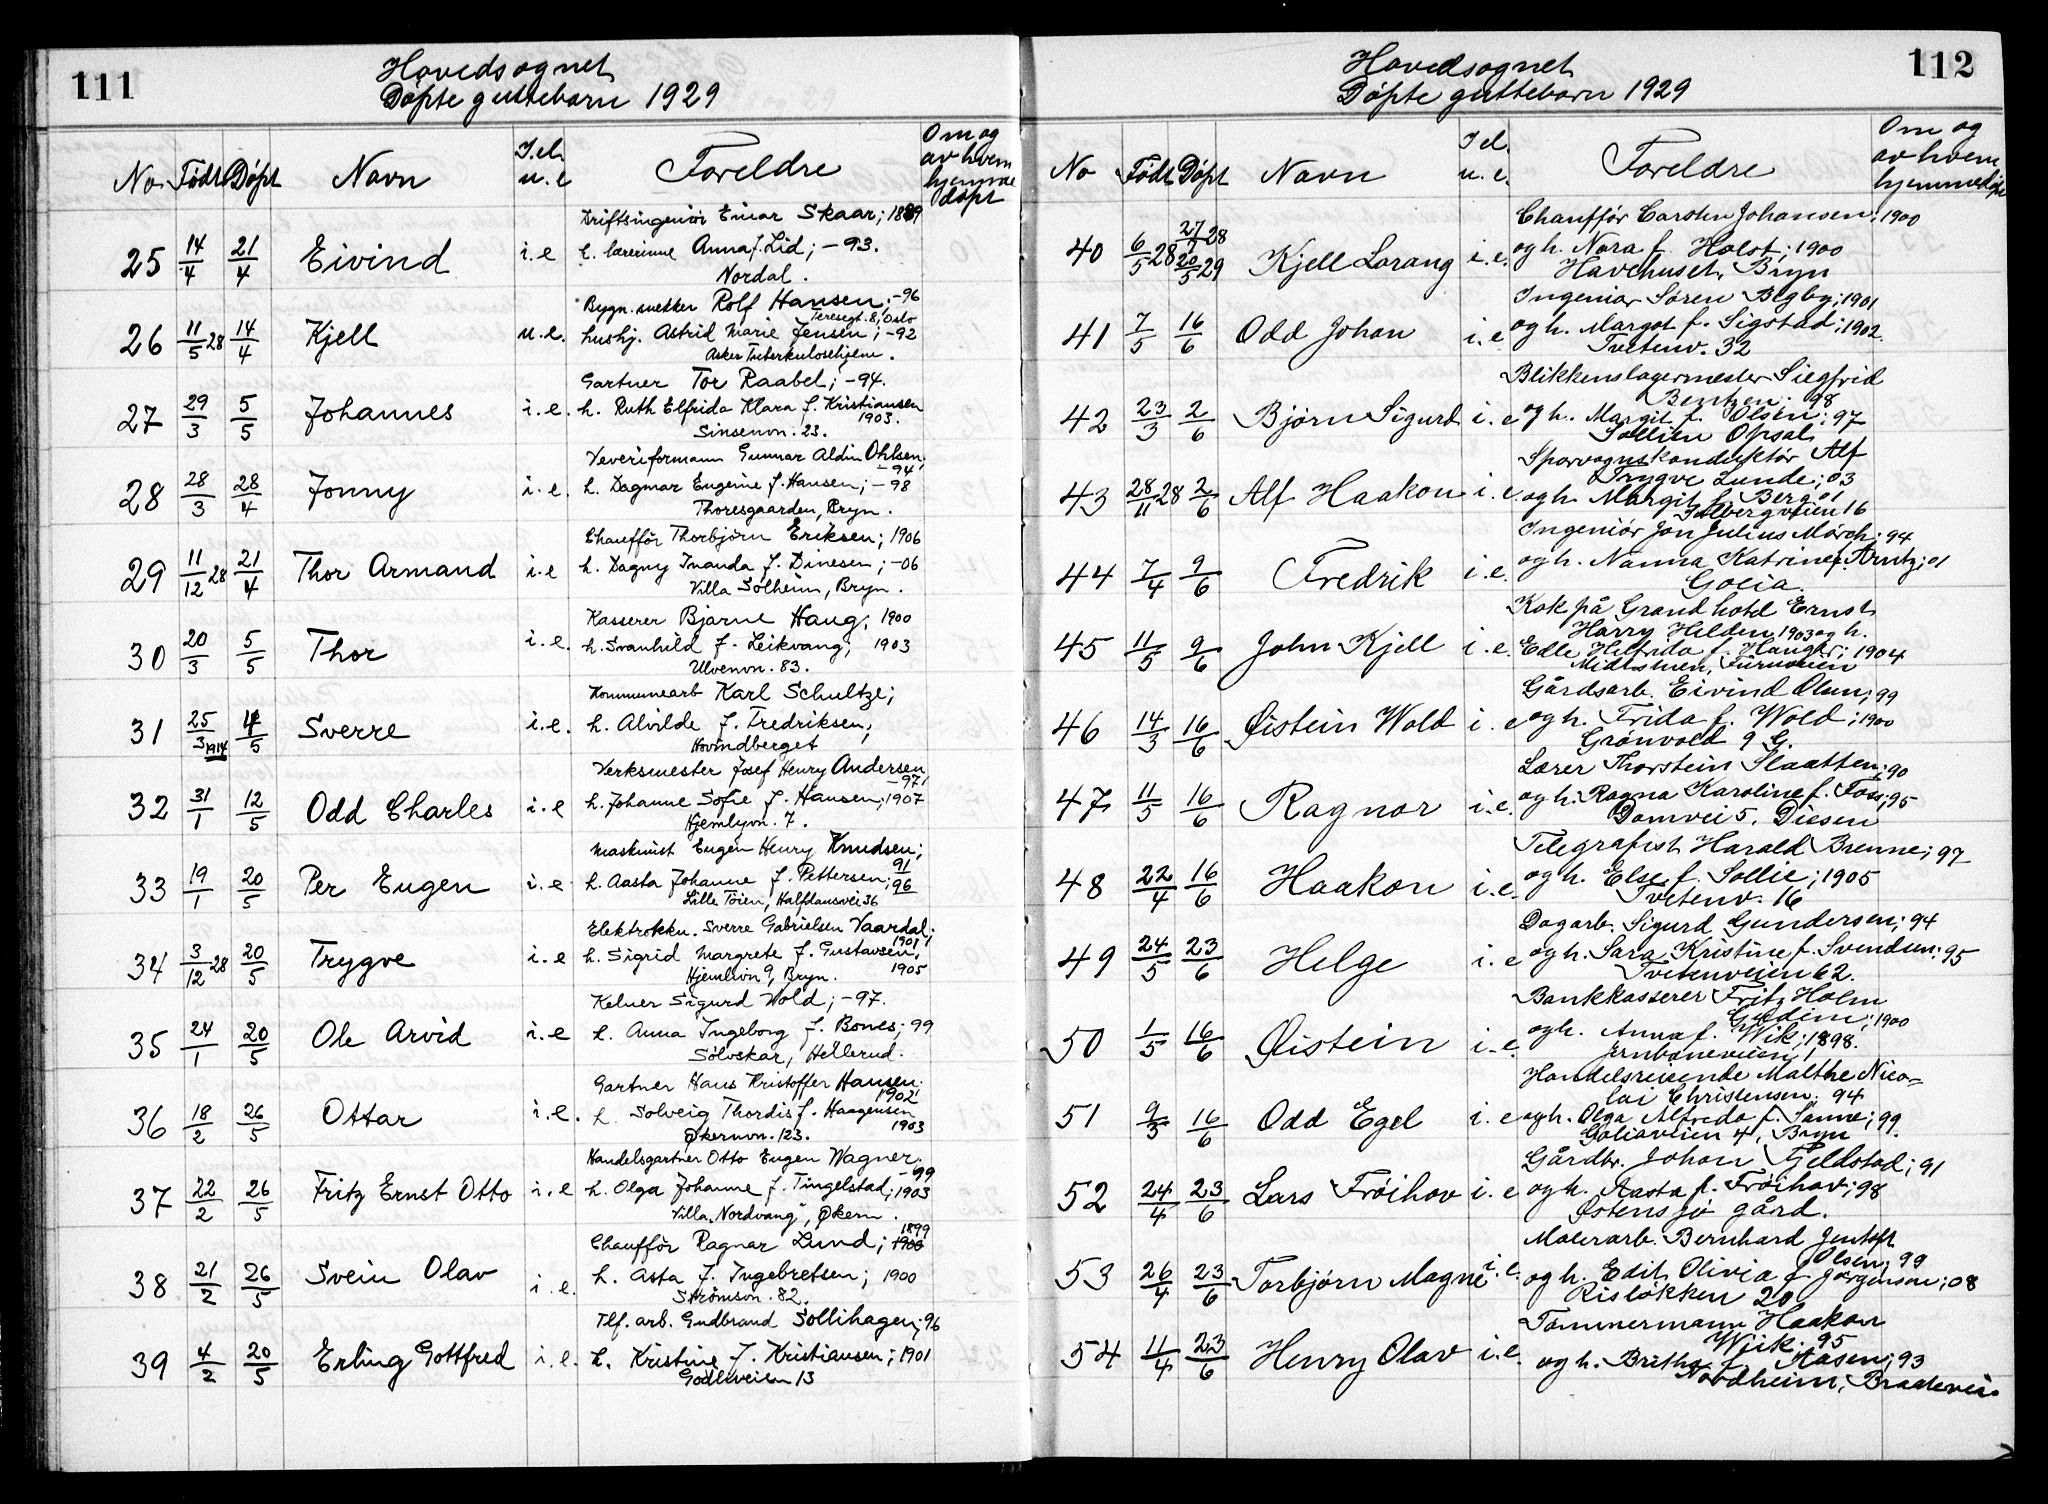 111
Hovedsognet
Døpte guttebarn 1929
No. Født Døpt Navn I.el. u.e Foreldre Om og av hvem hjemmedøpt
Driftsingeniør Einar Skaar; 1889
25 14/4 21/4 Eivind i.e h. lærerinne Anna f. Lid; -93.
Nordal.
Bygn.snekker Rolf Hansen; -96
Teresegt. 8, Oslo
26 11/5 28 14/4 Kjell u.e. hushj. Astrid Marie Jensen; -92
Asker Tuberkulosehjem.
Gartner Tor Raabel; -94.
27 29/3 5/5 Johannes i.e. h. Ruth Elfrida Klara f. Kristiansen
1903.
Sinsenvn. 23.
Veveriformann Gunnar Aldin Ohlsen;
-94
28 28/3 28/4 Jonny i.e. h. Dagmar Eugenie f. Hansen; -98
Thoresgaarden, Bryn.
Chauffør Thorbjørn Eriksen; 1906
29 11/12 28 21/4 Thor Armand i.e h. Dagny Inanda f. Dinesen; -06
Villa Solheim, Bryn.
Kasserer Bjarne Haug; 1900
30 20/3 5/5 Thor i.e. h. Svanhild f. Leikvang; 1903
Ulvenvn. 83.
Kommunearb Karl Schultze;
31 25/3 1914 4/5 Sverre i.e. h. Alvilde f. Fredriksen;
Hovindberget
Verksmester Josef Henry Andersen
-97
32 31/1 12/5 Odd Charles i.e h. Johanne Sofie f. Hansen; 1907
Hjemlyvn. 7.
Maskinist Eugen Henry Knudsen;
91
33 19/1 20/5 Per Eugen i.e h. Aasta Johanne f. Pettersen; 96
Lille Tøien, Halfdansvei 36
Elektrokku. Sverre Gabrielsen Vaardal;
1901
34 3/12 28 20/5 Trygve i.e h. Sigrid Margrete f. Gustavsen;
1905
Hjemlivn 9, Bryn.
Kelner Sigurd Wold; -97.
35 24/1 20/5 Ole Arvid i.e h. Anna Ingeborg f. Bones; 99
Sølvskar, Hellerud.
Gartner Hans Kristoffer Hansen.
1902
36 18/2 26/5 Ottar i.e. h. Solveig Thordis f. Haagensen
1903
Økernvn. 123.
Handelsgartner Otto Eugen Wagner.
-99
37 22/2 26/5 Fritz Ernst Otto i.e h. Olga Johanne f. Tingelstad; 1903
Villa "Nordvang", Økern.
1899
Chauffør Ragnar Lund; 1900
38 21/2 26/5 Svein Olav i.e. h. Asta f. Ingebretsen; 1900
Strømsvn. 82.
Tlf. arb. Gudbrand Sollihagen; 96
39 4/2 20/5 Erling Gottfred i.e. h. Kristine f. Kristiansen; 1901
Godliveien 13
112
Hovedsognet
Døpte guttebarn 1929
No Født Døpt Navn I el. u.e. Foreldre Om og av hvem hjemmedøpt
Chauffør Carsten Johansen; 1900
40 6/5 28 27/7 28 20/5 29 Kjell Lorang i.e. og h. Nora f. Holst; 1900
Havehuset, Bryn
Ingeniør Søren Begby; 1901
41 7/5 16/6 Odd Johan i.e og h. Margot f. Sigstad; 1902.
Tvetenv. 32
Blikkenslagermester Siegfrid
Bentzen; 98
42 23/3 2/6 Bjørn Sigurd i.e og h. Margit f. Olsen; 97
Sollien Opsal
Sporvognskonduktør Alf
Trygve Lunde; 03
43 28/11 28 2/6 Alf Haakon i.e og h. Margit f. Berg 01
Solbergveien 16
Ingeniør Jon Julius Mørch; 94
44 7/4 9/6 Fredrik i.e. og h. Nanna Katrine f. Arntz; 01
Golia.
Kok på Grand hotel Ernst
Harry Helden 1903 og h.
45 11/5 9/6 John Kjell i.e. Edle Helfrida f. Hauger; 1904
Midtstuen, Furuveien
Gårdsarb. Eivind Olsen; 99
46 14/3 16/6 Øistein Wold i.e og h. Frida f. Wold; 1900
Grønvold 9 G.
Lærer Thorstein Slaatten; 90
47 11/5 16/6 Ragnar i.e. og h. Ragna Karoline f. Foss; 95
Damvei 5. Diesen
Telegrafist Harald Brenne; 97
48 22/4 16/6 Haakon i.e. og h. Else f. Sollie; 1905
Tvetenv. 16
Dagarb. Sigurd Gundersen; 94
49 24/5 23/6 Helge i.e og h. Sara Kristine f. Svendsen; 95
Tvetenveien 62.
Bankkasserer Fritz Holm
Guldim; 1900
50 1/5 16/6 Øistein i.e. og h. Anna f. Wik; 1898.
Jernbaneveien 1
Handelsreisende Malthe Nico=
lai Christensen. 94
51 9/3 16/6 Odd Egel i.e og h. Olga Alfreda f. Sanne; 99.
Goliaveien 4, Bryn
Gårdbr. Johan Fjeldstad; 91
52 24/4 23/6 Lars Frøihov i.e og h. Aasta f. Frøihov; 98
Østensjø gård.
Malerarb. Bernhard Jentoft
Olsen; 99
53 26/4 23/6 Torbjørn Magne i.e. og h. Edit Olivia f. Jørgensen; 08
Risløkken 20
Tømmermann Haakon
Wiik; 95
54 11/4 23/6 Henry Olav i.e. og h. Britha f. Aasen; 93
Nordheim, Bradevei.